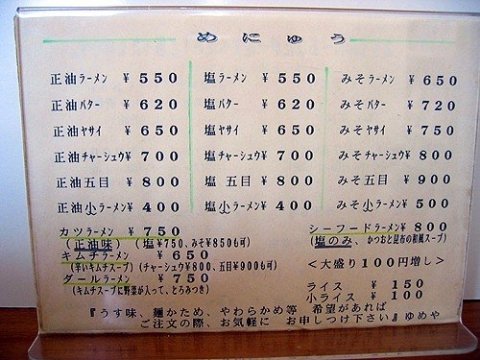 めにゅう
正油ラーメン ¥550 塩ラーメン ¥550 みそラーメン ¥650
正油バター ¥620 塩バター ¥620 みそバター ¥720
正油ヤサイ ¥650 塩ヤサイ ¥650 みそヤサイ ¥750
正油チャーシュウ¥700 塩チャーシュウ¥700 みそチャーシュウ¥800
正油五目 ¥800 塩五目 ¥800 みそ五目 ¥900
正油小ラーメン ¥400 塩小ラーメン ¥400 みそ小ラーメン ¥500
カツラーメン ¥750 シーフードラーメン ¥800
(正油味) (塩¥750、みそ¥850も可) (塩のみ、かつおと昆布の和風スープ)
キムチラーメン ¥650
(辛いキムチスープ)(チャーシュウ¥800、五目¥900も可) <大盛り100円増し>
ダールラーメン ¥750 ライス ¥150
(キムチスープに野菜が入って、とろみつき) 小ライス ¥100
『うす味、麺かため、やわらかめ等 希望があれば
ご注文の際、お気軽に お申しつけ下さい』ゆめや